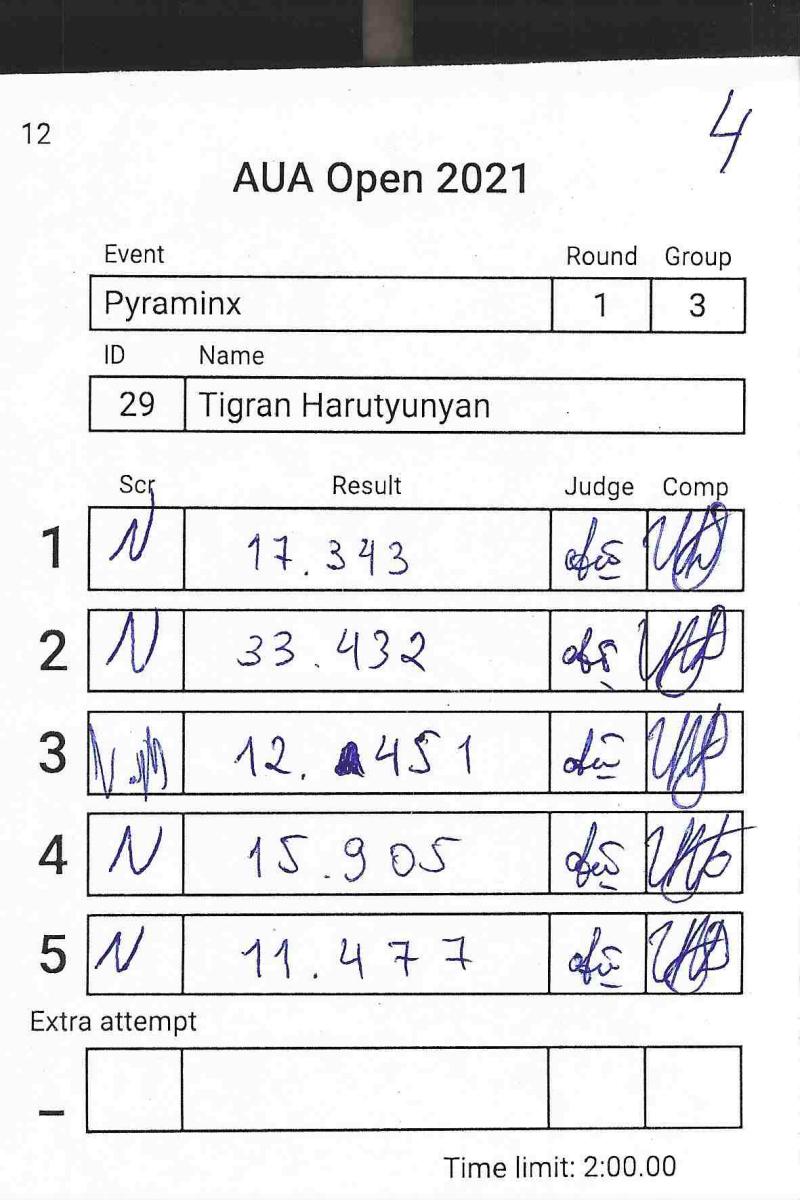 4
12
AUA Open 2021
Event Round Group
Pyraminx 1 3
ID Name
29 Tigran Harutyunyan
Scr Result Judge Comp
1 N 17.343
2 N 33.432
3 N 12.451
4 N 15.905
5 N 11.477
Extra attempt
_
Time limit: 2:00.00